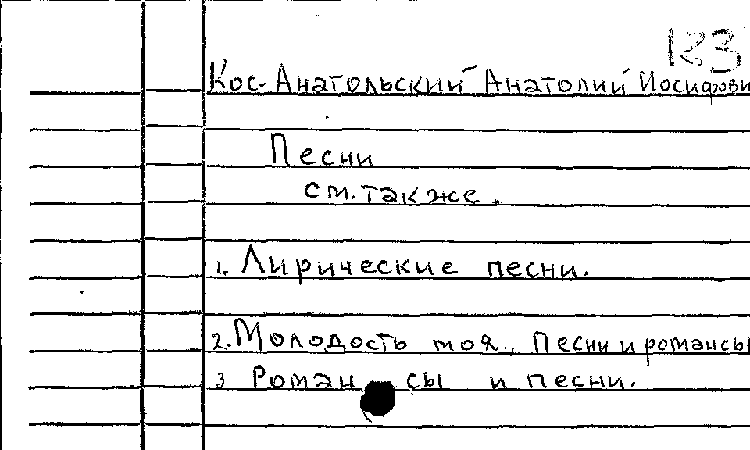 123
Кос-Анатольский Анатолий Иосифови
Песни
см. также.
1. Лирические песни.
2. Молодость моя. Песни и романсы
3 Романсы и песни.